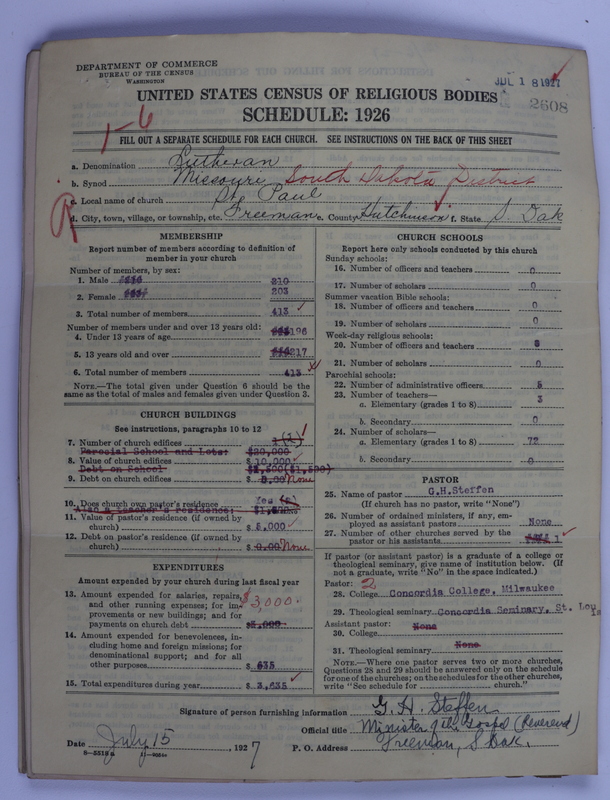 DEPARTMENT OF COMMERCE
BUREAU OF THE CENSUS
WASHINGTON
JUL 18 1927
2608
UNITED STATES CENSUS OF RELIGIOUS BODIES
SCHEDULE: 1926
1-6
FILL OUT A SEPARATE SCHEDULE FOR EACH CHURCH. SEE INSTRUCTIONS ON THE BACK OF THIS SHEET
a. Denomination Lutheran
b. Synod Missouri South Dakota District
c. Local name of church St. Paul
d. City, town, village, or township, etc. Freeman e. County Hutchinson f. State S. Dak
MEMBERSHIP
Report number of members according to definition of
member in your church
Number of members, by sex:
1. Male 210
2. Female 203
3. Total number of members 413
Number of members under and over 13 years old:
4. Under 13 years of age 196
5. 13 years old and over 217
6. Total number of members 413
NOTE.—The total given under Question 6 should be the
same as the total of males and females given under Question 3.
CHURCH BUILDINGS
See instructions, paragraphs 10 to 12
7. Number of church edifices 1 (1)
Parocial School and Lots: $20,000
8. Value of church edifices $ 10,000
Debt on School $1,500($1,500)
9. Debt on church edifices $ 0,00 None
10. Does church own pastor's residence? Yes
Also a teacher's residence:
11. Value of pastor's residence (if owned by
church) $ 5,000
12. Debt on pastor's residence (if owned by
church) $ 0.00 None
EXPENDITURES
Amount expended by your church during last fiscal year
13. Amount expended for salaries, repairs, $3,000.
and other running expenses; for im-
provements or new buildings; and for
payments on church debt $3,000
14. Amount expended for benevolences, in-
cluding home and foreign missions; for
denominational support; and for all
other purposes $ 635
15. Total expenditures during year $ 3,635
CHURCH SCHOOLS
Report here only schools conducted by this church
Sunday schools:
16. Number of officers and teachers 0
17. Number of scholars 0
Summer vacation Bible schools:
18. Number of officers and teachers 0
19. Number of scholars 0
Week-day religious schools:
20. Number of officers and teachers
21. Number of scholars 0
Parochial schools:
22. Number of administrative officers 5
23. Number of teachers—
a. Elementary (grades 1 to 8) 3
b. Secondary 0
24. Number of scholars—
a. Elementary (grades 1 to 8) 72
b. Secondary 0
PASTOR
25. Name of pastor G.H.Steffen
(If church has no pastor, write "None")
26. Number of ordained ministers, if any, em-
ployed as assistant pastors None
27. Number of other churches served by the
pastor or his assistants 1
If pastor (or assistant pastor) is a graduate of a college or
theological seminary, give name of institution below. (If
not a graduate, write "No" in the space indicated.)
Pastor: 2
28. College Concordia College, Milwaukee
29. Theological seminary Concordia Seminary, St. Louis
Assistant pastor: None
30. College
31. Theological seminary None
NOTE.—Where one pastor serves two or more churches,
Questions 28 and 29 should be answered only on the schedule
for one of the churches; on the schedules for the other churches,
write "See schedule for church."
Signature of person furnishing information G. H. Steffen
Official title Minister of the Gospel (Reverend)
Date July 15, 1927 P. O. Address Freeman, S Dak.